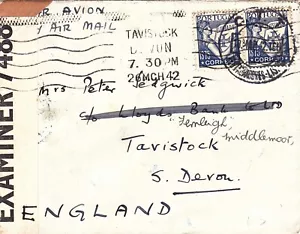 PAR AVION
BY AIR MAIL
TAVISTOCK
DEVON
7.30 PM
26 MCH 42
PORTUGAL
CORREIO
EXAMINER 7488
Mrs Peter Sedgwick
c/o Lloyds Bank Ltd
Fernleigh,
middlemoor,
Tavistock
S. Devon.
ENGLAND